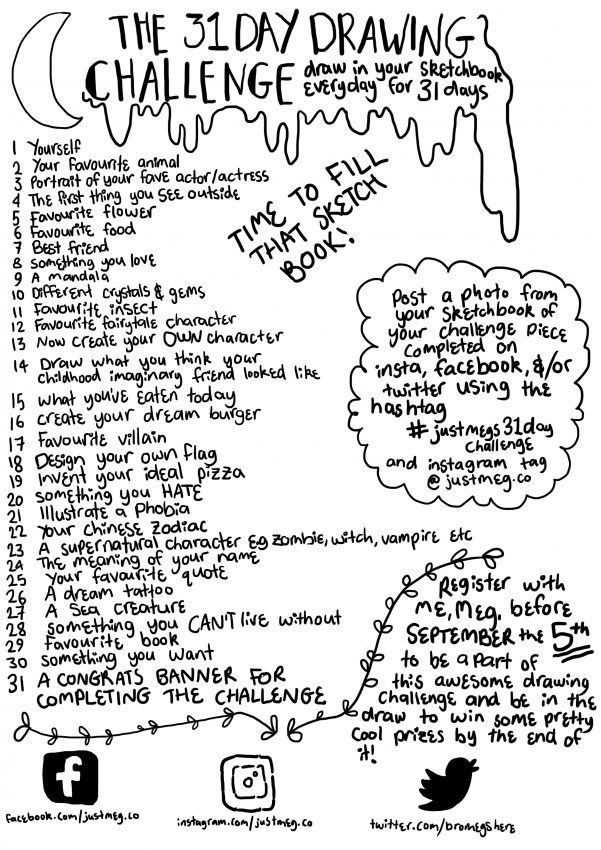 THE 31 DAY DRAWING
CHALLENGE draw in your sketchbook
everyday for 31 days
TIME TO FILL
THAT SKETCH
BOOK!
1 Yourself
2 Your favourite animal
3 Portrait of your fave actor/actress
4 The first thing you see outside
5 Favourite flower
6 Favourite food
7 Best friend
8 Something you love
9 A mandala
10 Different crystals & gems
11 Favourite insect
12 Favourite fairytale character
13 Now create your OWN character
14 Draw what you think your
childhood imaginary friend looked like
15 what you've eaten today
16 create your dream burger
17 Favourite villain
18 Design your own flag
19 Invent your ideal pizza
20 something you HATE
21 Illustrate a Phobia
22 Your Chinese Zodiac
23 A supernatural character eg zombie, witch, vampire etc
24 The meaning of your name
25 Your favourite quote
26 A dream tattoo
27 A Sea creature
28 something you CAN'T live without
29 Favourite book
30 Something you want
31 A CONGRATS BANNER FOR
COMPLETING THE CHALLENGE
Post a photo from
your sketchbook of
your challenge piece
completed on
insta, facebook, &/or
twitter using the
hashtag
#justmegs31day
challenge
and instagram tag
@justmeg.co
Register with
me, Meg. before
SEPTEMBER the 5th
to be a part of
this awesome drawing
challenge and be in the
draw to win some pretty
cool prizes by the end of
it!
facebook.com/justmeg.co
instagram.com/justmeg.co
twitter.com/bromegshere